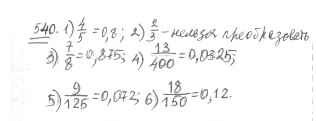 540. 1) 4/5 = 0,8; 2) 2/3 - нельзя преобразовать
3) 7/8 = 0,875; 4) 13/400 = 0,0325;
5) 9/125 = 0,072; 6) 18/150 = 0,12.